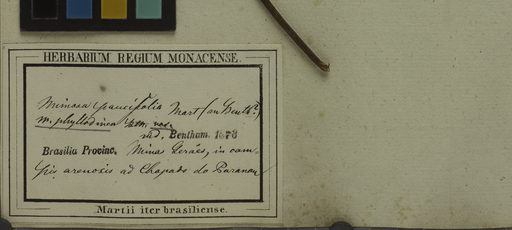 HERBARIUM REGIUM MONACENSE.
Mimosa paucifolia Mart (an Benth.?)
M. phyllodinea Benth.
vid. Bentham. 1873
Brasilia Provinc. Minas Geräes, in cam-
pis arenosis ad Chapado do Paranan
Martii iter brasiliense.